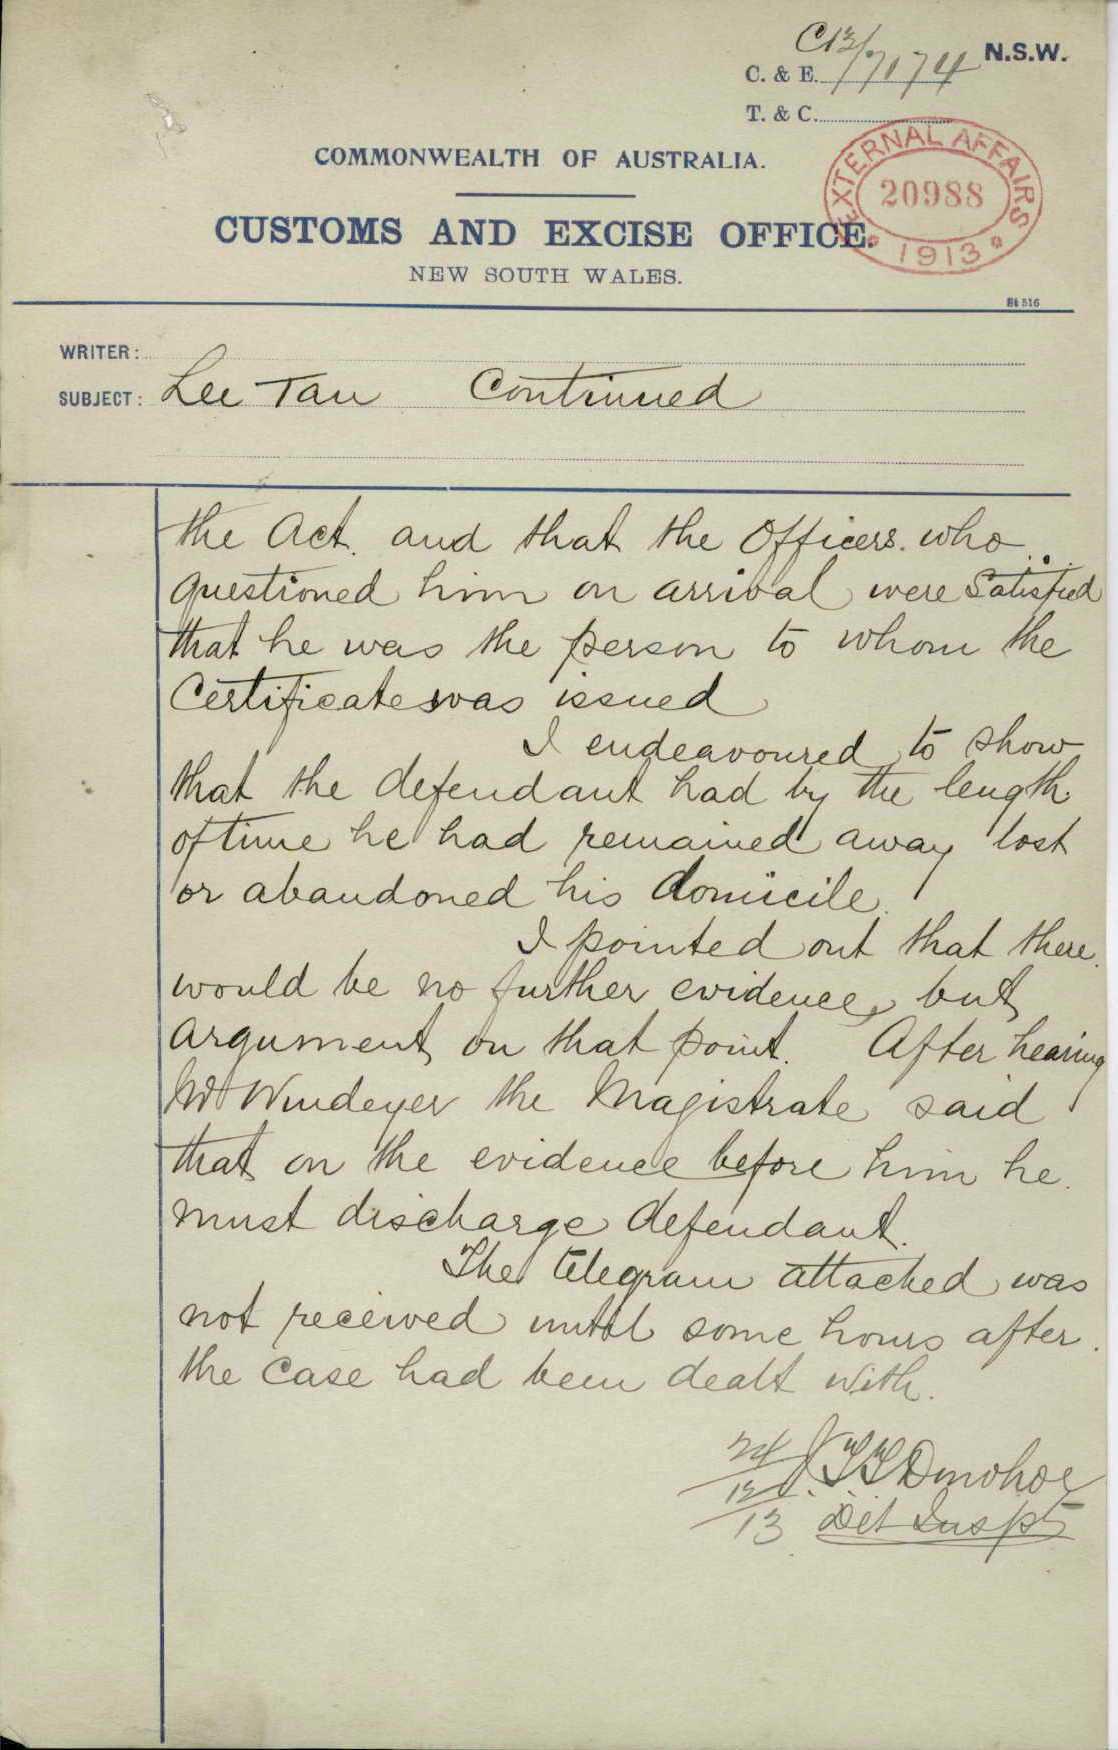 C13/7174 N.S.W.
C. & E.
T. & C.
COMMONWEALTH OF AUSTRALIA.
EXTERNAL AFFAIRS
20988
1913
CUSTOMS AND EXCISE OFFICE.
NEW SOUTH WALES.
WRITER:
SUBJECT: Lee Tau Continued
the Act. and that the Officers. who
questioned him on arrival were Satisfied
that he was the person to whom the
Certificate was issued
I endeavoured to show
that the defendant had by the length
of time he had remained away lost
or abandoned his domicile.
I pointed out that there.
would be no further evidence, but
argument on that point. After hearing
Mr Windeyer the Magistrate said
that on the evidence before him he.
must discharge defendant.
The telegram attached was
not received until some hours after.
the Case had been dealt with.
24/12/13 Donohoe
Det Inspt